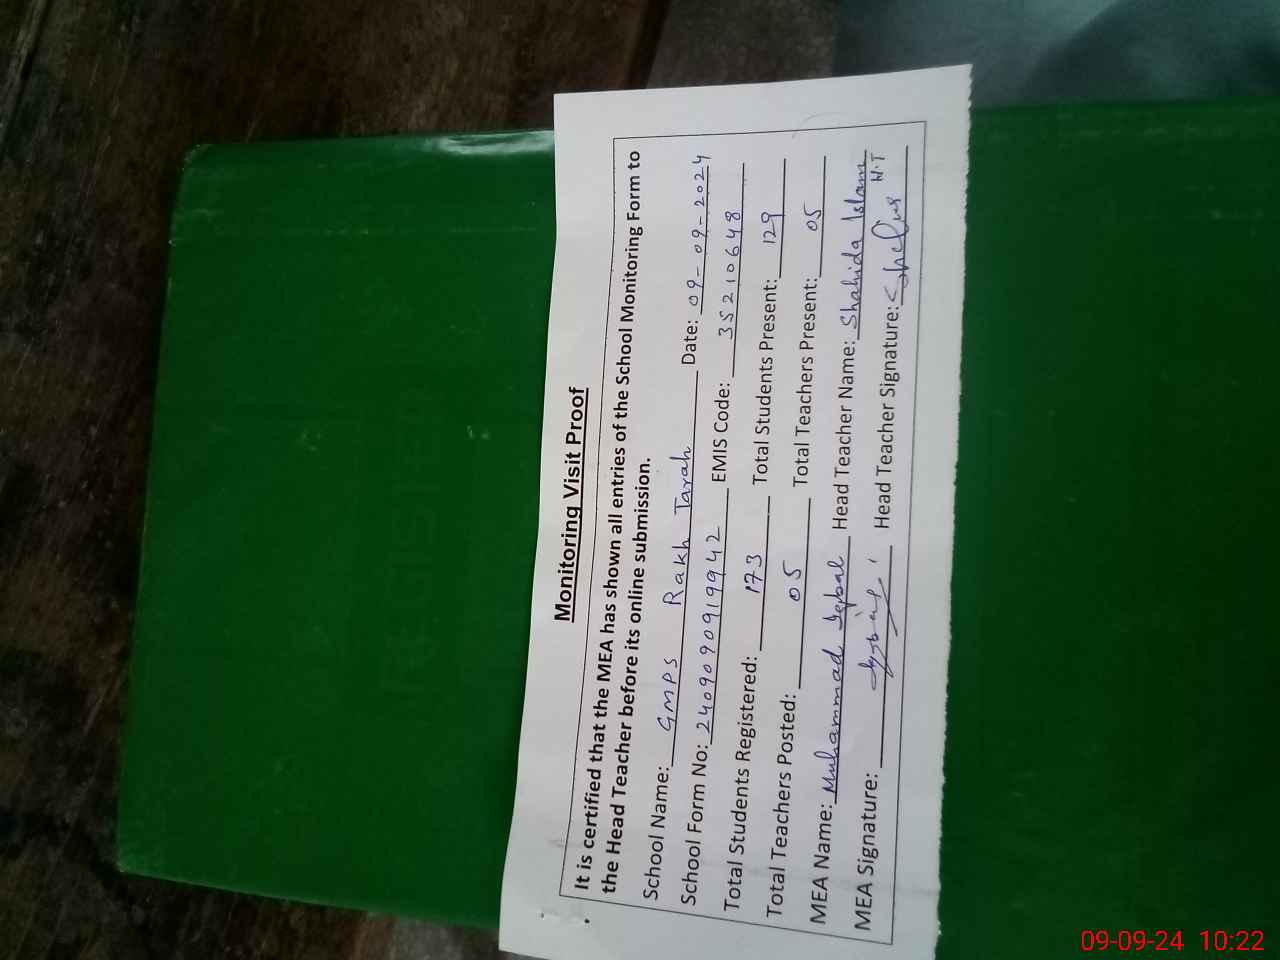 Monitoring Visit Proof
It is certified that the MEA has shown all entries of the School Monitoring Form to
the Head Teacher before its online submission.
School Name: GMPS Rakh Tarah Date: 09-09-2024
School Form No: 2409090919942 EMIS Code: 35210648
Total Students Registered: 173 Total Students Present: 129
Total Teachers Posted: 05 Total Teachers Present: 05
MEA Name: Muhammad Iqbal Head Teacher Name: Shahida Islam
MEA Signature: Head Teacher Signature: H.T
09-09-24 10:22